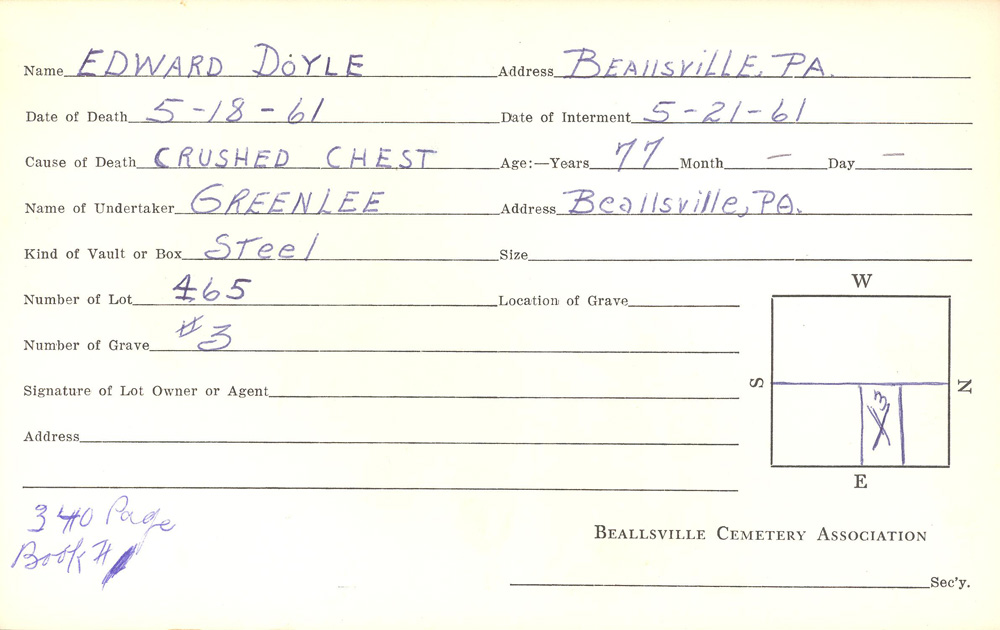 Name EDWARD DOYLE Address BEAllSVILLE, PA.
Date of Death 5-18-61 Date of Interment 5-21-61
Cause of Death CRUSHED CHEST Age:—Years 77 Month — Day —
Name of Undertaker GREENLEE Address Beallsville, PA.
Kind of Vault or Box STeel Size
W
Number of Lot 465 Location of Grave
Number of Grave #3
S N
Signature of Lot Owner or Agent
X3
Address
E
340 Page
Book #1
BEALLSVILLE CEMETERY ASSOCIATION
Sec'y.